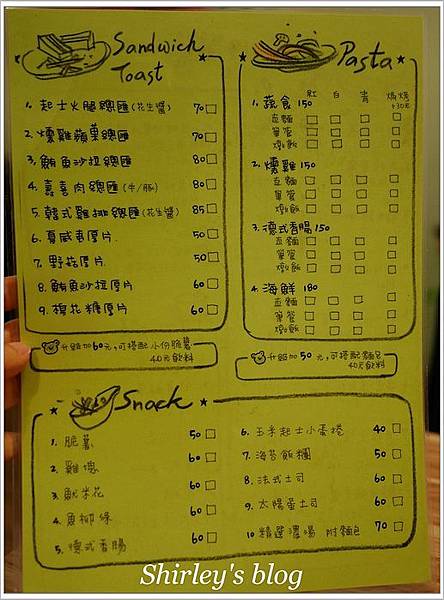 Sandwich
Toast
1. 起士火腿總匯(花生醬) 70
2. 燻雞蘋果總匯 70
3. 鮪魚沙拉總匯 80
4. 嘉喜肉總匯(牛/豚) 80
5. 韓式雞排總匯(花生醬) 85
6. 夏威夷厚片 50
7. 野菇厚片 50
8. 鮪魚沙拉厚片 60
9. 棉花糖厚片 60
升級加60元,可搭配小份脆薯
40元飲料
Pasta
紅 白 青 焗烤
+30元
1. 蔬食 150
直麵
筆管
燉飯
2. 燻雞 150
直麵
筆管
燉飯
3. 德式香腸 150
直麵
筆管
燉飯
4. 海鮮 180
直麵
筆管
燉飯
升級加50元,可搭配麵包
40元飲料
Snack
1. 脆薯 50
2. 雞塊 60
3. 魷米花 60
4. 魚柳條 60
5. 德式香腸 60
6. 玉米起士小蛋捲 40
7. 海苔飯糰 50
8. 法式土司 60
9. 太陽蛋土司 60
10. 精選濃湯 附麵包 70
Shirley's blog